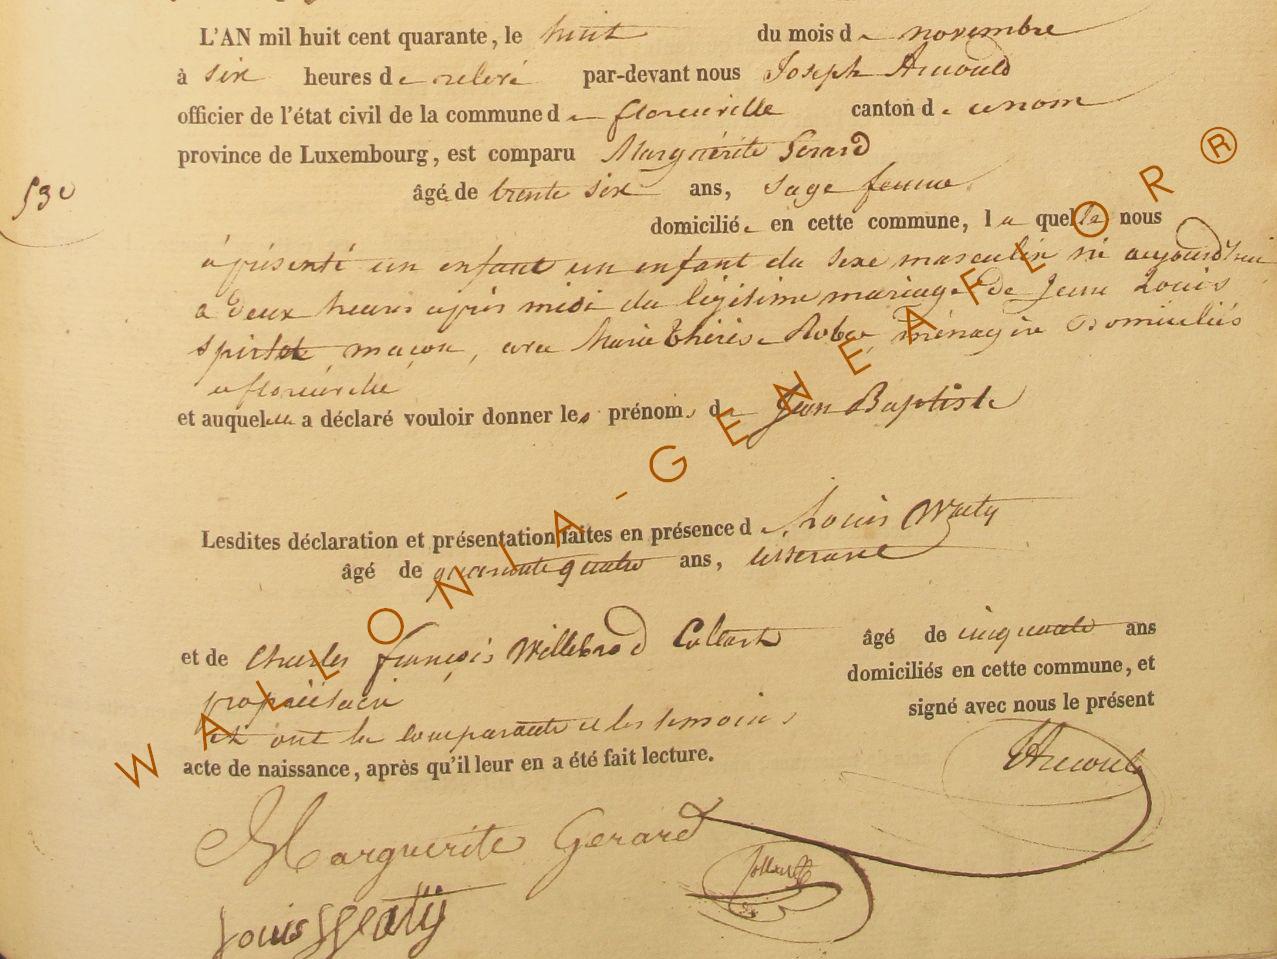 L'AN mil huit cent quarante, le huit du mois de novembre
à six heures de relevé par-devant nous Joseph Arnould
officier de l'état civil de la commune de florenville canton de ce nom
province de Luxembourg, est comparu Marguérite Gerard
53e
âgé de trente six ans, sage femme
domiciliée en cette commune, la quelle nous
a présenté un enfant un enfant du sexe masculin né aujourd'hui
a deux heures après midi du légitime mariage de Jean Louis
maçon, avec Marie thérèse ménagère Domiciliés
a florenville
et auquel a déclaré vouloir donner les prénoms de Jean Baptiste
Lesdites déclaration et présentation faites en présence de Louis
âgé de quarante quatre ans,
et de Charles françois Willebrod âgé de cinquante ans
propriétaire domiciliés en cette commune, et
signé avec nous le présent
et ont la comparante et les temoins
acte de naissance, après qu'il leur en a été fait lecture.
Arnould
Marguerite Gerard
Louis
WALLONIA-GENEAFLOR®